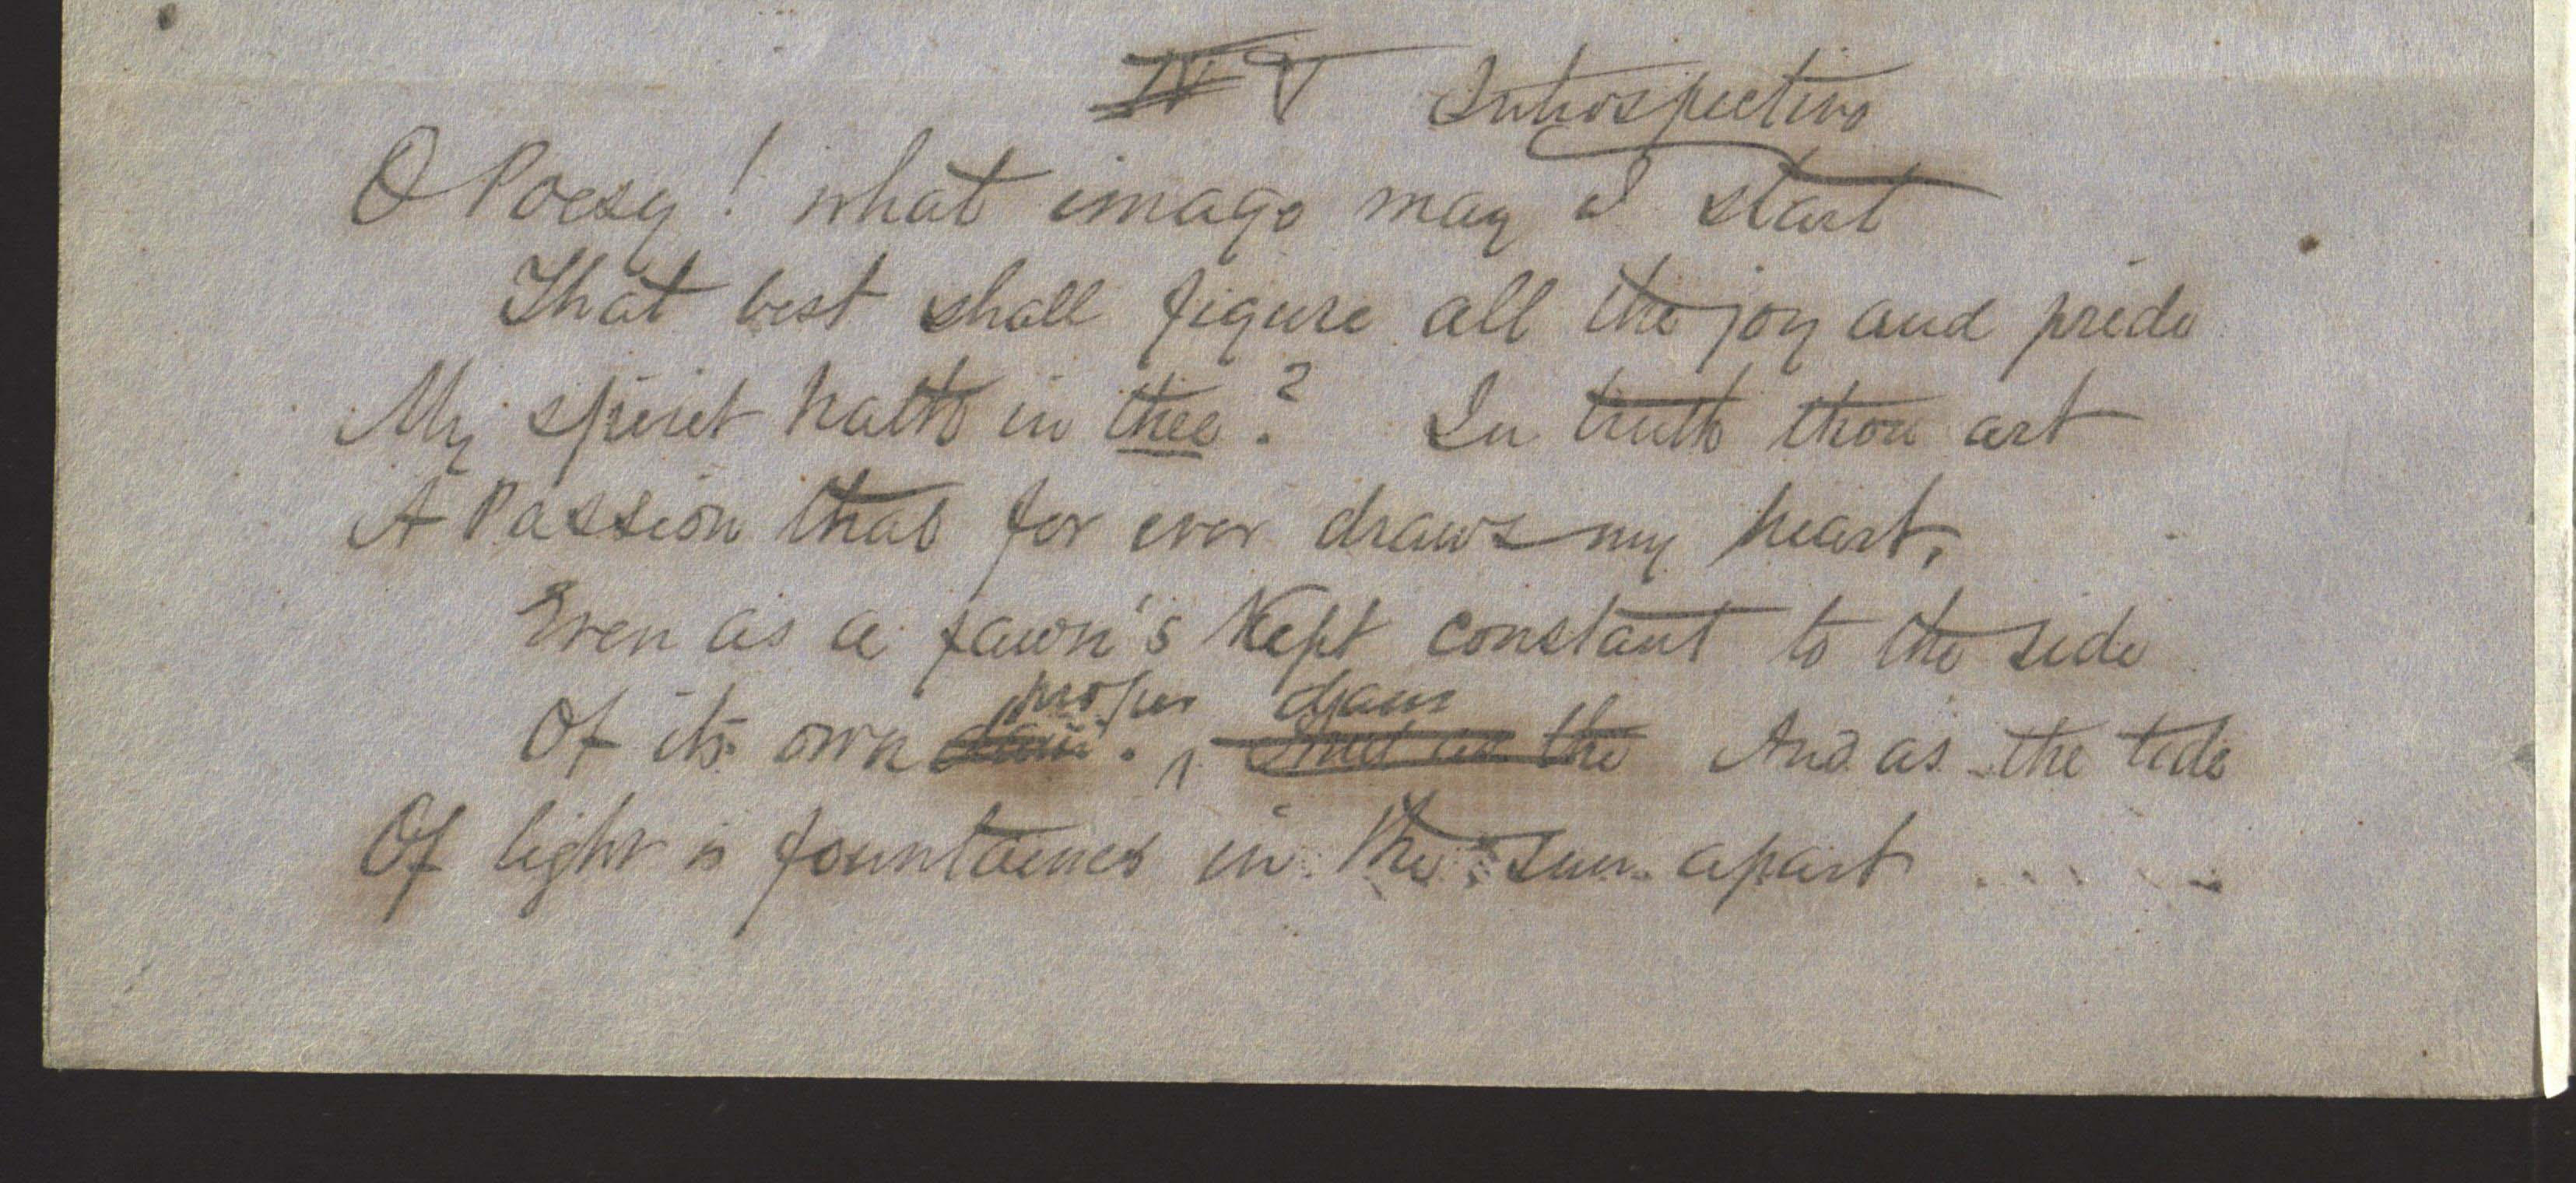 IV V Introspective
O Poesy! what image may I start
That best shall figure all the joy and pride
My spirit hath in thee? In truth thou art
A Passion that for ever draws my heart,
Even as a fawn's kept constant to the side
proper dam
Of its own dam. And as the And as the tide
Of light is fountained in the sun apart .....